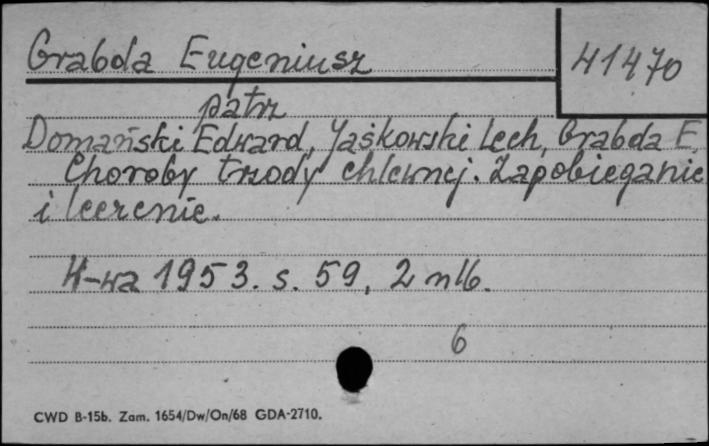 Grabda Eugeniusz
41470
patrz
Domański Edward, Jaśkowski Lech, Grabda E.
Choroby trzody chlewnej. Zapobieganie
i leczenie.
W-wa 1953. s. 59, 2 nlb.
6
CWD B-15b. Zam. 1654/Dw/On/68 GDA-2710.